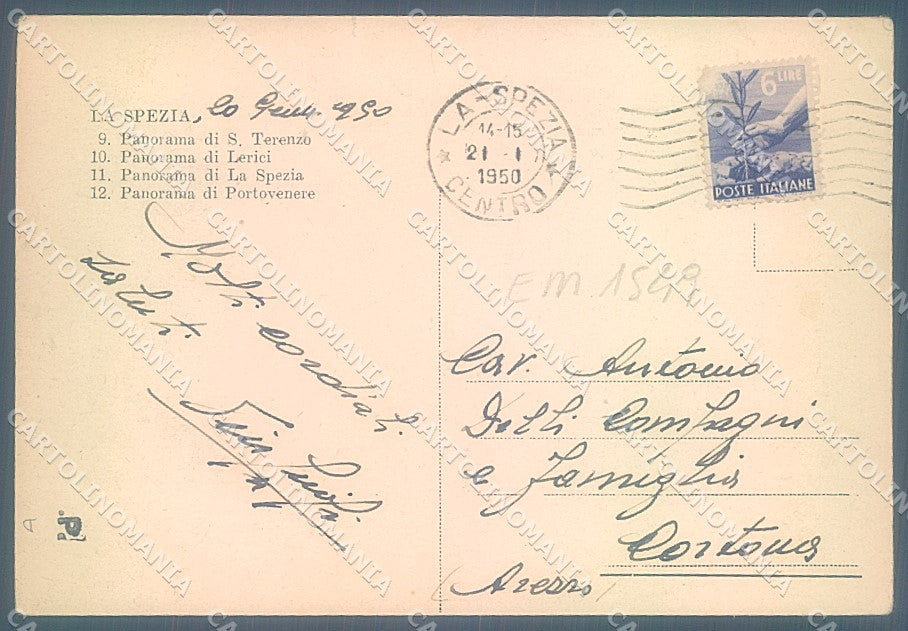 LA SPEZIA, 20 Genn. 1950
9. Panorama di S. Terenzo
10. Panorama di Lerici
11. Panorama di La Spezia
12. Panorama di Portovenere
Molti cordiali
saluti
LA SPEZIA
14-15
21 - 1
1950
CENTRO
6 LIRE
POSTE ITALIANE
EM 1549
Cav. Antonio
Delli Compagni
e Famiglia
Cortona
(Arezzo)
CARTOLINOMANIA